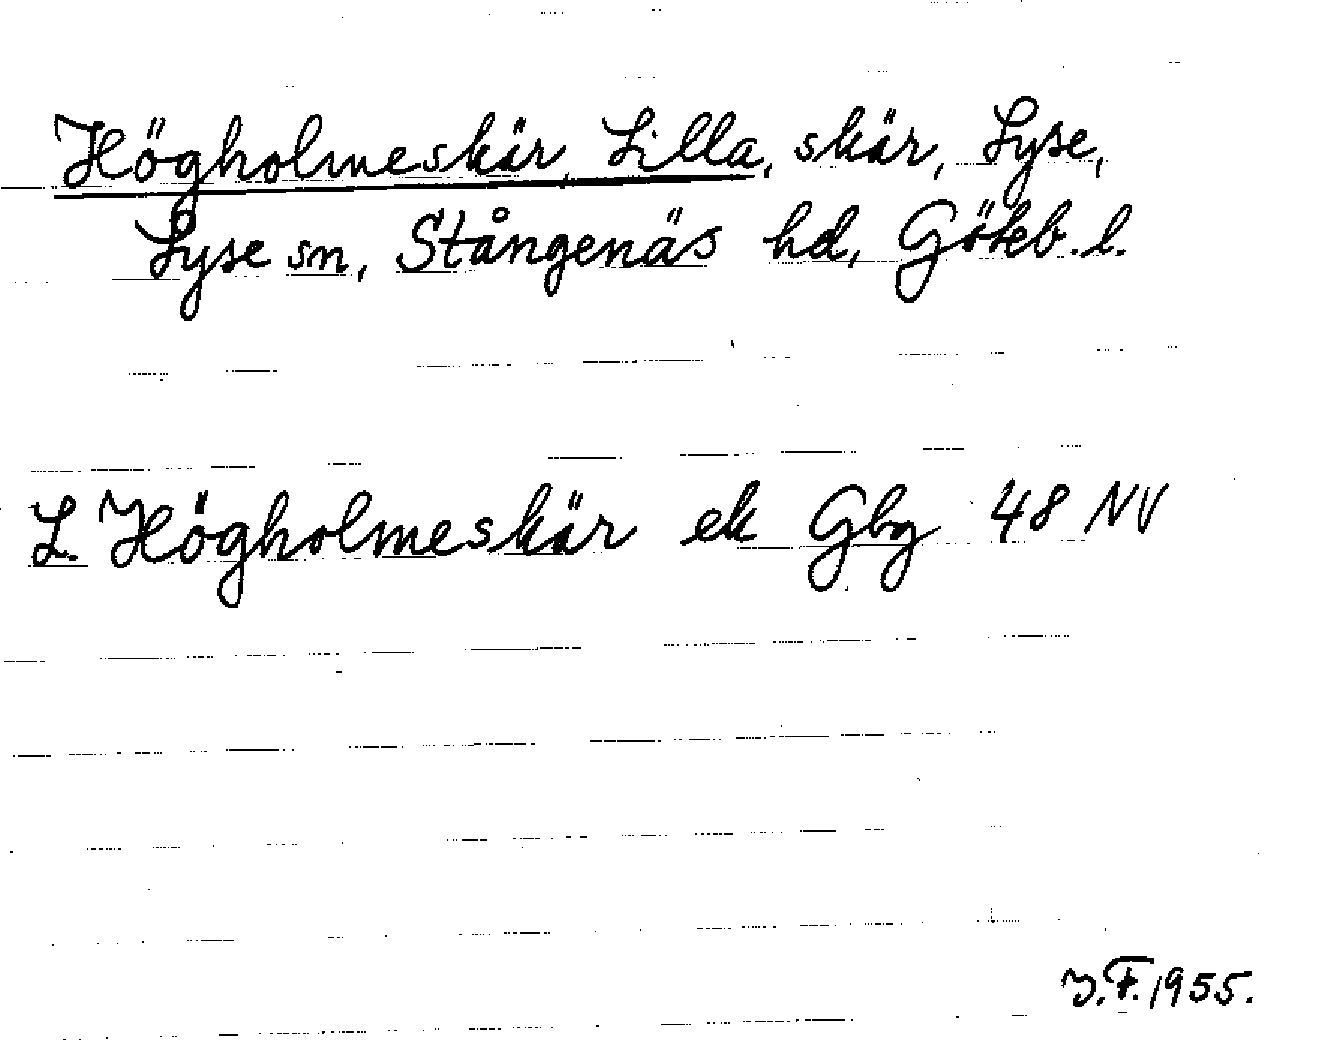 Högholmeskär, Lilla, skär, Lyse,
Lyse sn, Stångenäs hd, Göteb. l.
L. Högholmeskär ek Gbg 48 NV
J.F. 1955.